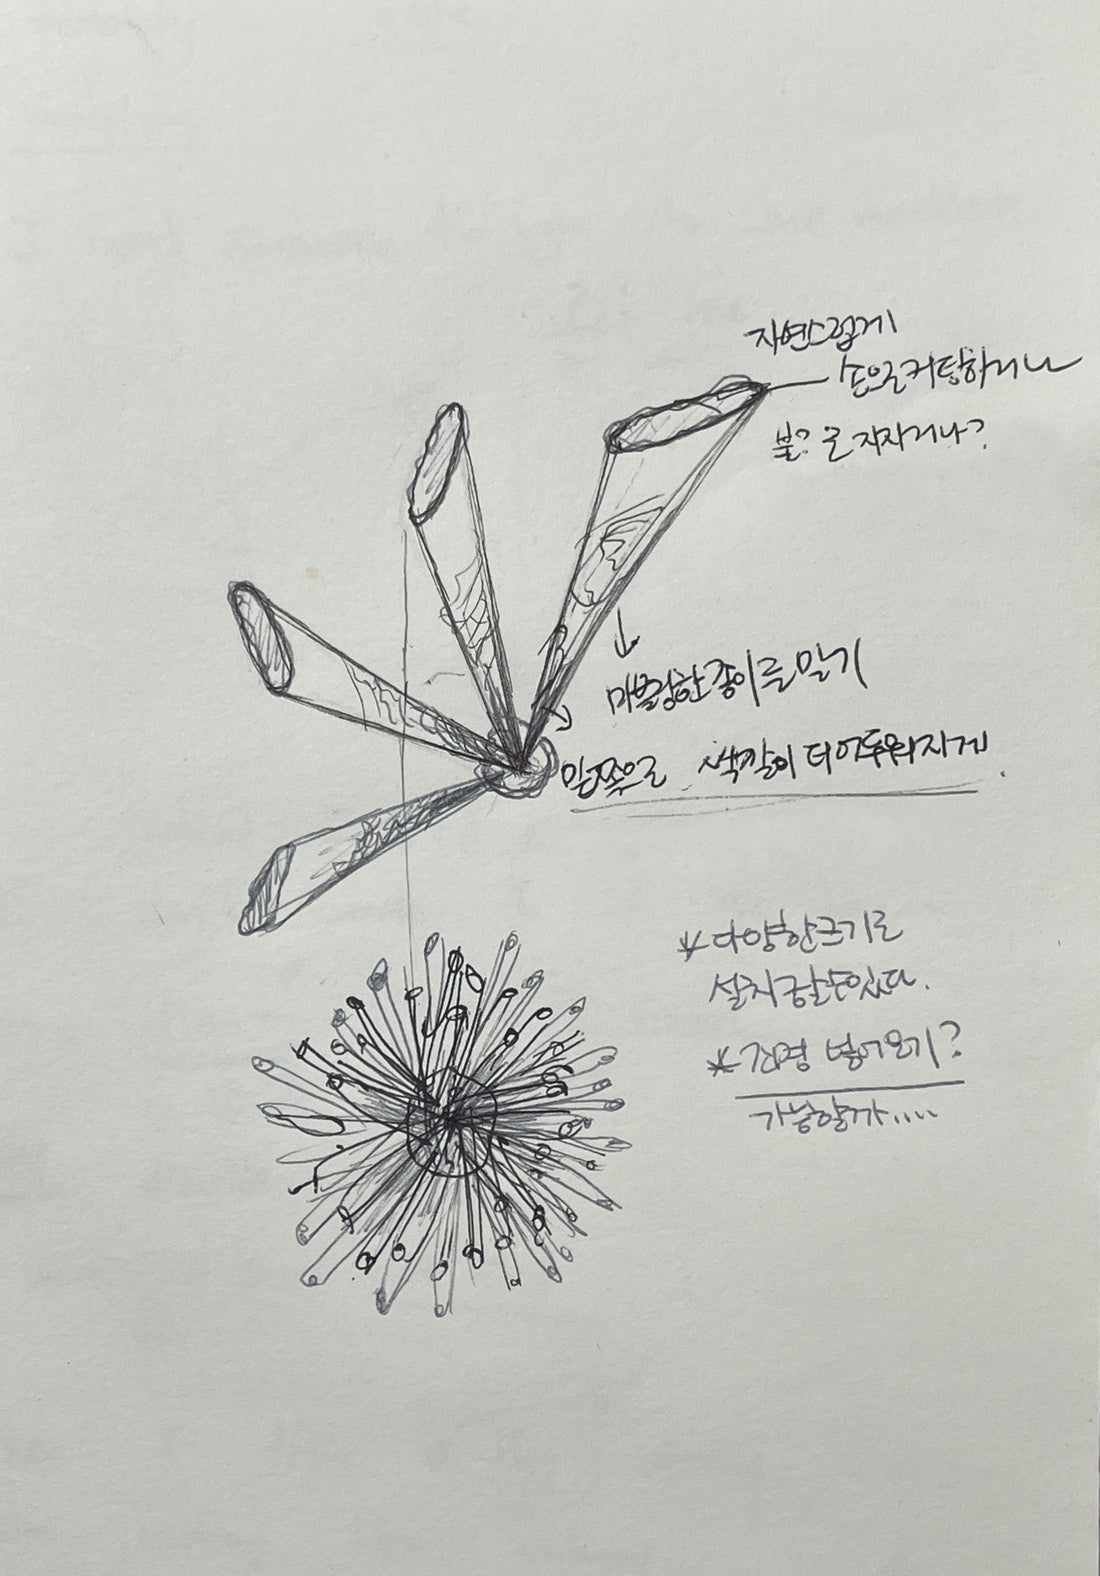 자연스럽게
손으로 커팅하거나
불?로 지지거나?
마블링한 종이를 말기
밑쪽으로 색깔이 더 어두워지게.
* 다양한 크기로
설치 할 수 있다.
* 조명 넣어보기?
가능할까....